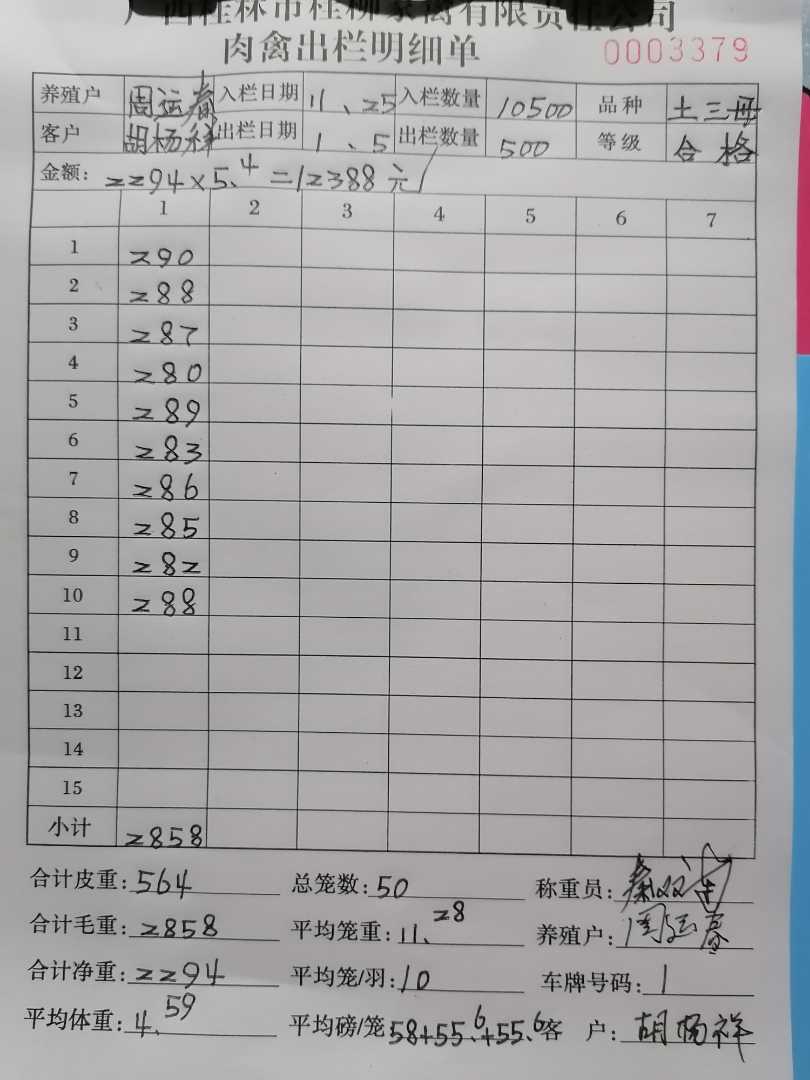 广西桂林市桂柳家禽有限责任公司
肉禽出栏明细单 0003379
养殖户 周运春 入栏日期 11、25 入栏数量 10500 品种 土三丹
客户 胡杨祥 出栏日期 1、5 出栏数量 500 等级 合格
金额: 2294×5.4=12388元/
1 2 3 4 5 6 7
1 290
2 288
3 287
4 280
5 289
6 283
7 286
8 285
9 282
10 288
11
12
13
14
15
小计 2858
合计皮重:564 总笼数:50 称重员:
合计毛重:2858 平均笼重:11.28 养殖户:周运春
合计净重:2294 平均笼/羽:10 车牌号码:1
平均体重:4.59 平均磅/笼58+55.6+55.6 客户:胡杨祥